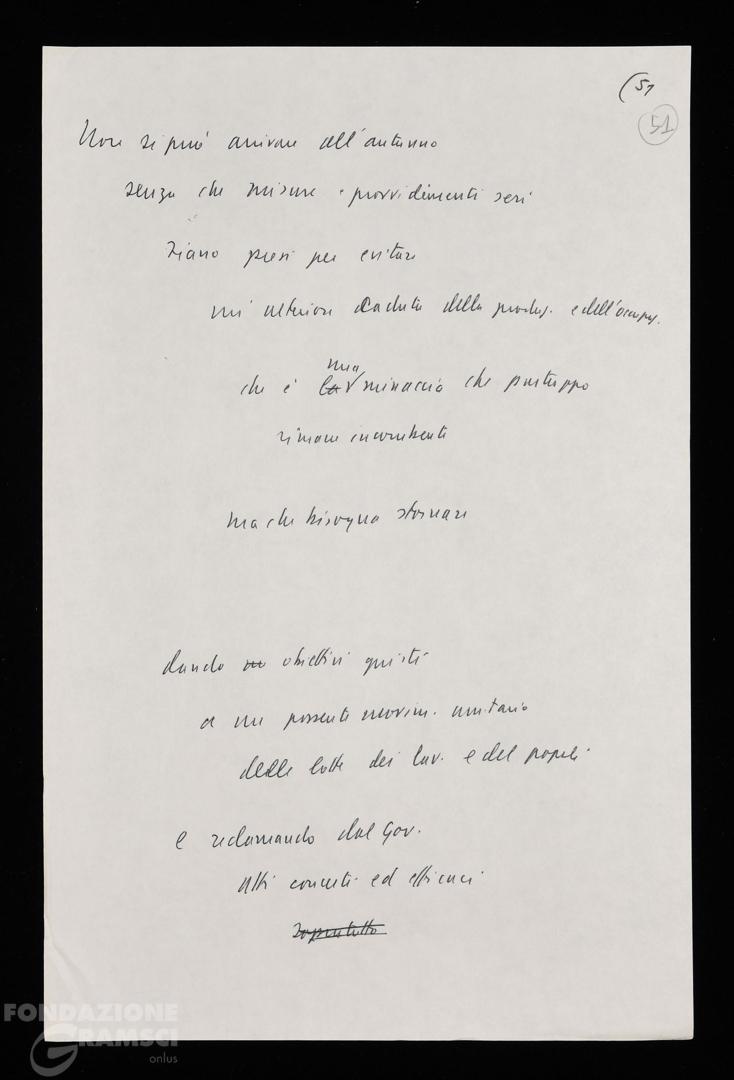 (51
51
Non si può arrivare all'autunno
senza che misure e provvedimenti seri
siano presi per evitare
un'ulteriore caduta della produz. e dell'occupaz.
una
che è la minaccia che purtroppo
rimane incombente
ma che bisogna stornare
dando obiettivi giusti
a un possente movim. unitario
delle lotte dei lav. e del popolo
e reclamando dal Gov.
atti concreti ed efficaci
Soprattutto
FONDAZIONE
GRAMSCI
onlus